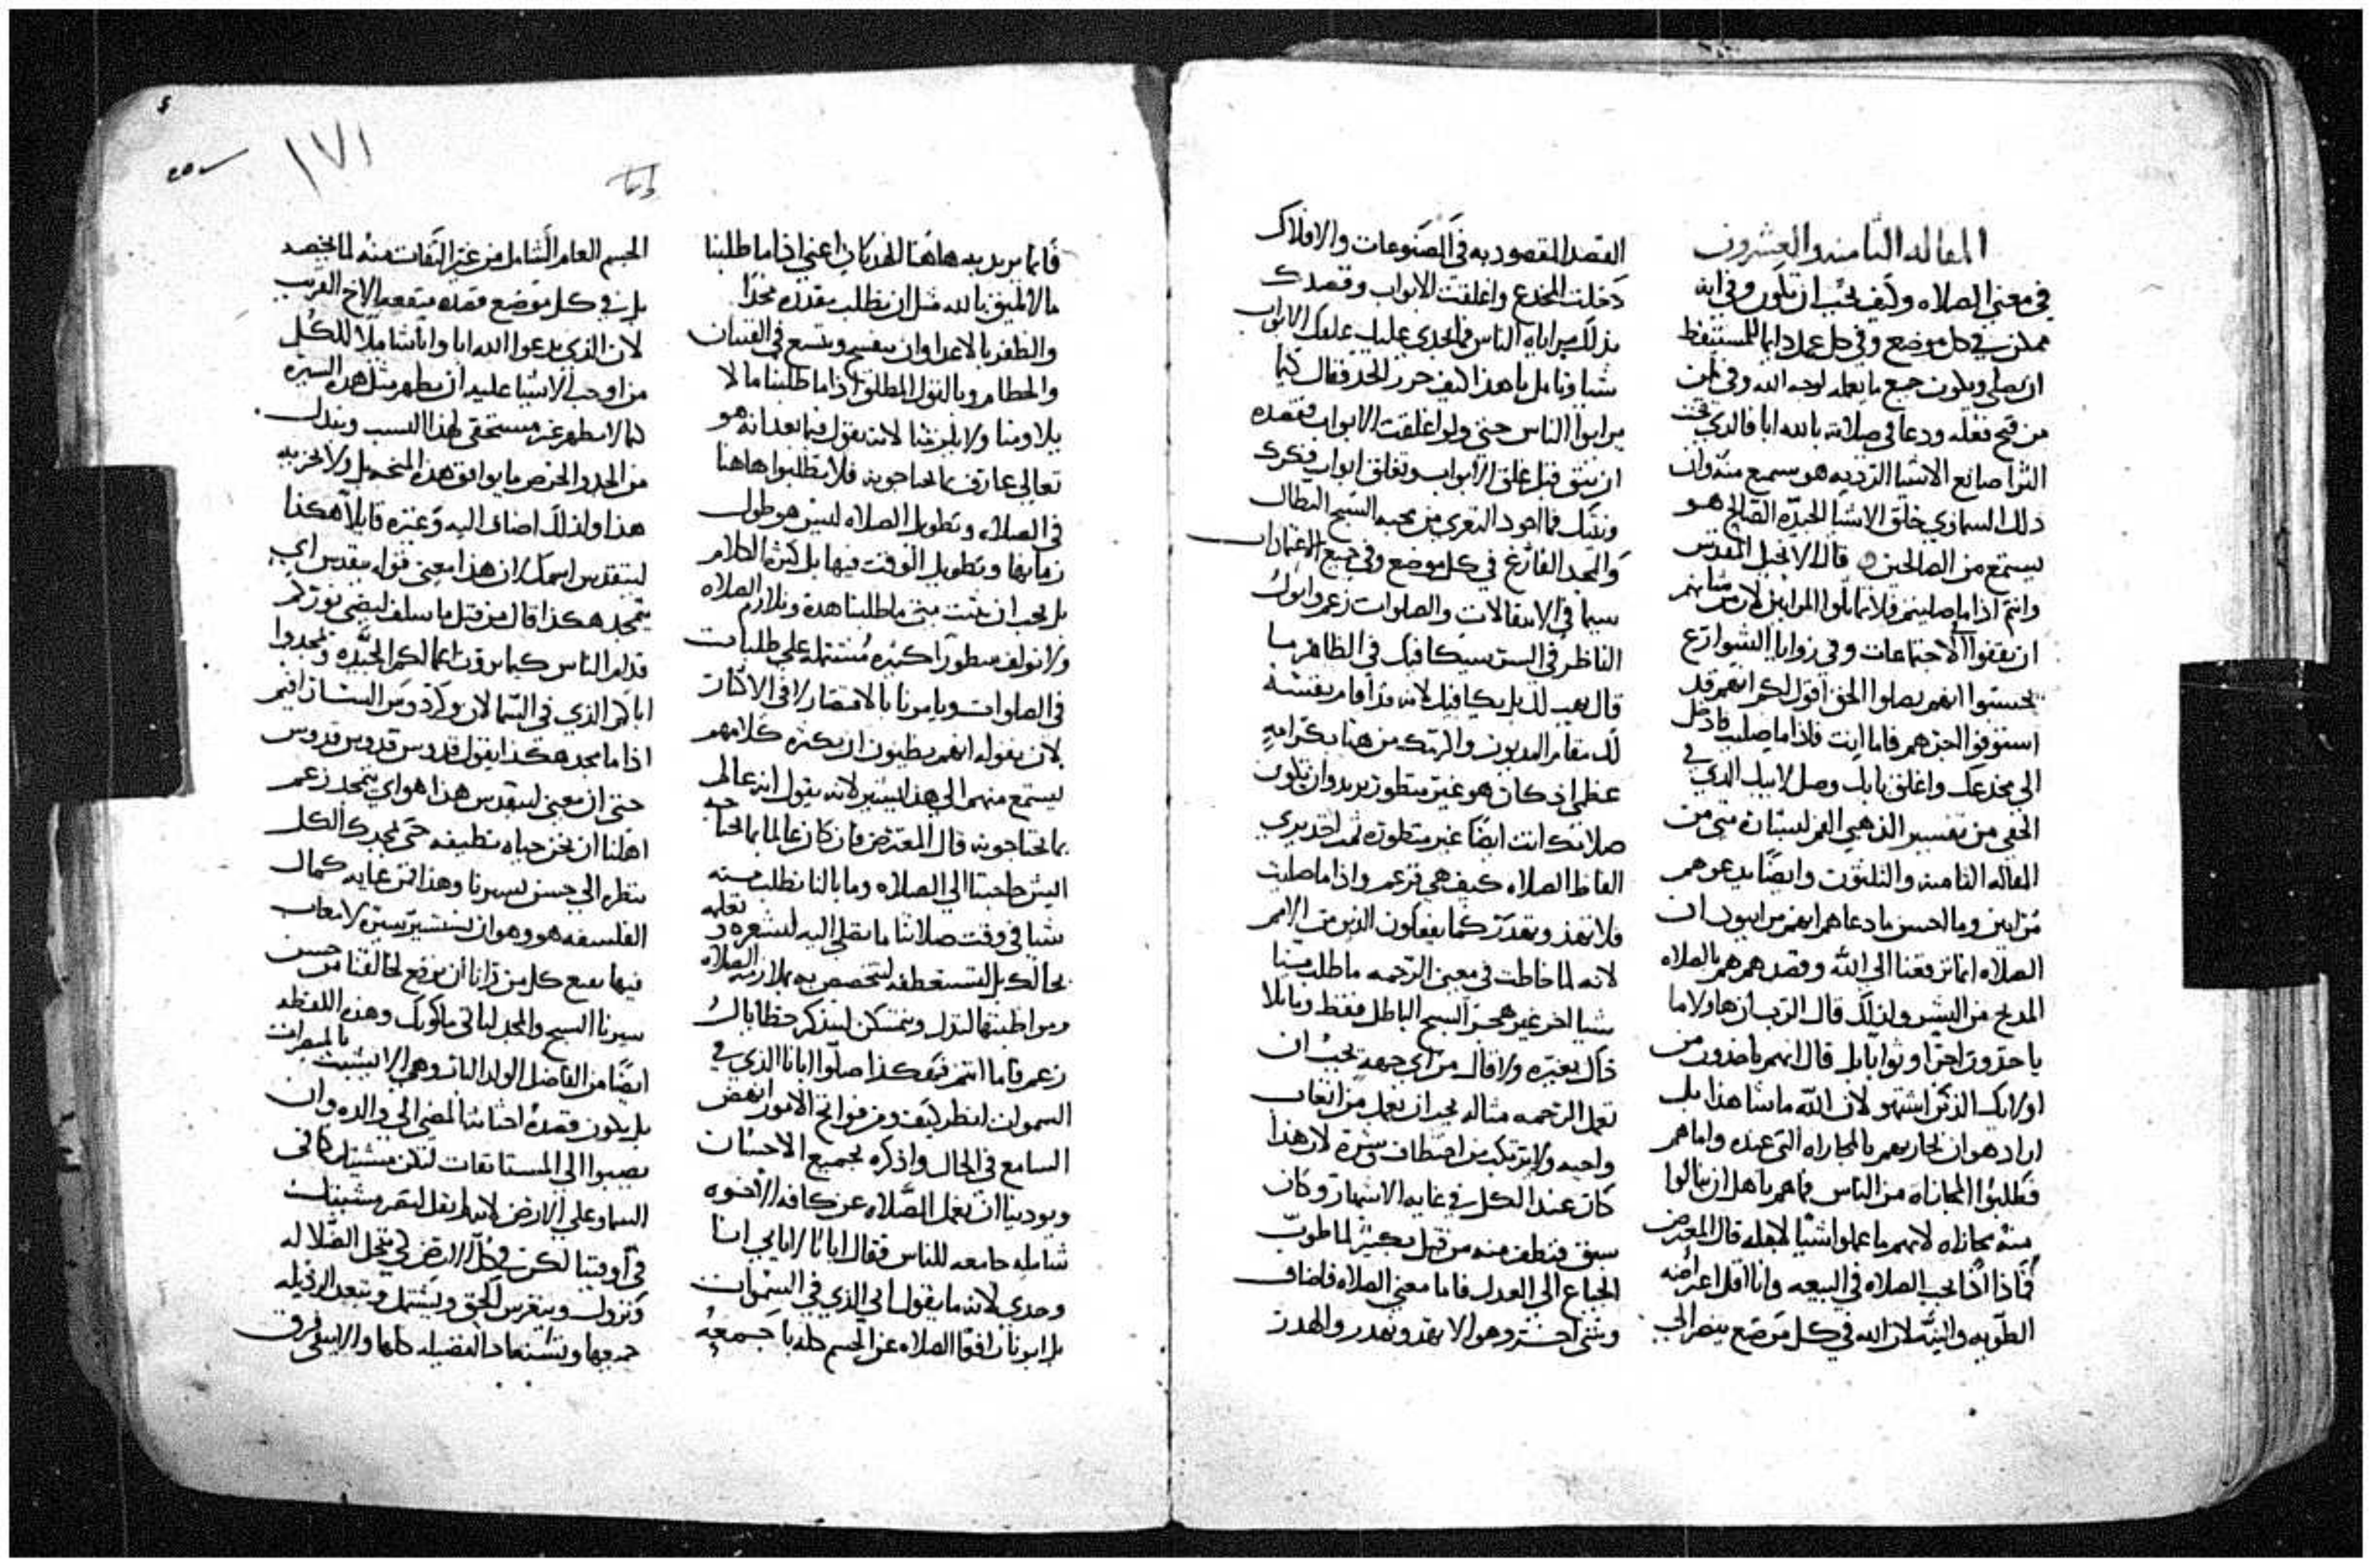 المقاله الثامنه والعشرون
في معنى الصلاه وكيف يجب ان تكون وفي انه
ممكن في كل موضع وفي كل عمل دايما للمستيقظ
ان يصلي ويكون جميع ما يعمله لوجه الله وفي
من فتح فعله ودعا في صلاته بالله ابا فالذي تحت
الثرا صانع الاشيا الرديه هو سميع منه وان
ذلك السماوي خالق الاشيا الجيده الصالح هو
يستمع من الصالحين قال الانجيل المقدس
وانتم اذا ما صليتم فلا تماثلوا المرايين لان من شانهم
ان يقفوا في الاجتماعات وفي زوايا الشوارع
يحسنوا انهم يصلوا الحق اقول لكم انهم قد
استوفوا اجرهم فاما انت فاذا ما صليت فادخل
الى مخدعك واغلق بابك وصل لابيك الذي في
الخفي من تفسير الذهبي الفم لبشارة متى من
المقاله الثامنه والثلثون وايضا يدعوهم
مرايين وما احسن ما دعاهم انهم مراييون ان
الصلاه انما ترفعنا الى الله وقصدهم هم بالصلاه
المديح من البشر ولذلك قال الرب ان هاولاما
ياخذون اجرا وثوابا بل قال انهم ياخذون من
اوليك الذين اشتهو لان الله ما شا هذا بل
اراد هو ان يجازيهم بالمجازاه التي عنده واما هم
فطلبوا المجازاه من الناس فما هم باهل ان ينالوا
منه مجازاه لانهم ما عملوا شيا لاجله قال المعترض
فماذا اذا يجب الصلاه في البيعه وانا اقل اعراضه
الطويه والنيه لان الله في كل موضع ينظر الى
القصد المقصود به في المصنوعات والافلاك
دخلت المخدع واغلقت الابواب وقصدك
بذلك مراياه الناس فما يجدي عليك غلقك الابواب
شيا وتامل يا هذا كيف حرر الحد فقال كيما
يرايوا الناس حتى ولو اغلقت الابواب فقصده
ان ينتق قبل غلق الابواب وتغلق ابواب فكرك
ونيتك فما اجود التعري من محبة السبح البطال
والمجد الفارغ في كل موضع وفي جميع الاعتمادات
سيما في الابتهالات والصلوات زعم وابوك
الناظر في السر سيكافيك في الظاهر ما
قال يهب لك بل يكافيك لانه قد اقام نفسه
لك مقام المديون واكرمك من هنا بكرامه
عظمى اذ كان هو غير منظور يريد وان تكون
صلاتك انت ايضا غير منظوره ثم اخذ يري
الفاظ الصلاه كيف هي فزعم واذا ما صليت
فلا تهذ وتهذر كما يفعلون الذين من الامم
لانه لما خاطب في معنى الرحمه ما طلب منا
شيا اخر غير هجر السبح الباطل فقط وما بلا
ذاك بغيره ولا قال من اي جهه يجب ان
تعمل الرحمه مثاله يجب ان تعمل من اتعاب
واجبه ولا ترتكب من اختطاف وشره لان هذا
كان عند الكل في غايه الاشتهار وكان
سبق فنظف منه من قبل بكثير لما طوب
الجياع الى العدل فاما معنى الصلاه فاضاف
وشي اخر وهو الا نهذ ونهذر والهذر
فانما يريد به هاهنا الهذيان اعني اذا ما طلبنا
ما لا يليق بالله مثل ان نطلب مقدره مجدا
والظفر بالاعدا وان ينفسح ويتسع في القنيان
والحطام وبالقول المطلق اذا ما طلبنا ما لا
يلاومنا ولا يلزمنا لانه يقول فيما بعد انه هو
تعالى عارف بما تحتاجونه فلا تطلبوا هاهنا
في الصلاه وتطويل الصلاه ليس هو طول
زمانها وتطويل الوقت فيها بل كثره الكلام
بل يجب ان نثبت متى ما طلبنا هذه ونلازم الصلاه
ولا نولف سطورا كثيره مشتمله على طلبات
في الصلوات ويامرنا بالاقتصار لا في الاكثار
لان يقوله انهم يظنون ان بكثرة كلامهم
يستمع منهم الى هذا يشير لانه يقول انه عالم
بما تحتاجونه قال المعترض فان كان عالما بما تحتاجه
ايش حاجتنا الى الصلاه وما بالنا نطلب منه
شيا في وقت صلاتنا ما نصلي اليه لنشعره ونعلمه
بحالك بل لتستعطفه لتختص به بملازمة الصلاه
ومواظبتها لتذل وتتمسكن لتذكر خطاياك
زعم فاما انتم فهكذا صلوا ابانا الذي في
السموات انظر كيف ومن فواتح الامور انهض
السامع في الحال واذكره بجميع الاحسان
ويودبنا ان نعمل الصلاه عن كافة الاخوه
شامله جامعه للناس فقال ابانا لا يا ابي انا
وحدي لانه ما يقول ابي الذي في السموات
بل ابونا رافعا الصلاه عن الجسم كله باجمعه
الجسم العام الشامل من غير التفات منه لما يخصه
بل في كل موضع قصده منفعة الاخ القريب
لان الذي يدعوا الله ابا وابا شاملا للكل
من اوجب الاشيا عليه ان يظهر مثل هذه السيره
كما لا يظهر غير مستحق لهذا النسب ويبذل
من الجد والحرص ما يوافق هذه المنحه بل ولا يجزيه
هذا ولذلك اضاف اليه وغيره قايلا هكذا
ليتقدس اسمك لان هذا معنى قوله يتقدس اي
يتمجد هكذا قال من قبل ما سلف ليضي نوركم
قدام الناس كيما يرون اعمالكم الجيده ويمجدوا
اباكم الذي في السما لان وكاروس السارافيم
اذا ما مجد هكذا يقول قدوس قدوس قدوس
حتى ان معنى ليتقدس هذا هو اي يتمجد زعم
اهلنا ان نحيى حياه نظيفه حتى يمجدك الكل
بنظره الى حسن سيرتنا وهذا فمن غاية كمال
الفلسفه هو وهو ان نستسير سيره لا تعاب
فيها بيع كل من رانا ان يرفع لخالقنا من حسن
سيرتنا السبح والمجد لياتي ملكوتك وهذه اللفظه
ايضا من الفاضل الولد البار وهي الا يتشبث بالمبصرات
بل يكون قصده احثاثا المضي الى والده وان
يصبوا الى المستانفات لتكن مشيتك كما في
السما وعلى الارض لانه لم يقل لتقم مشيتك
في او فينا لكن في كل الارض كي تنحل الضلاله
وتزول وينغرس الحق ويشتمل وتبعد الرذيله
جميعها وتستعاد الفضيله كلها والا يبقى فرق
١٧١